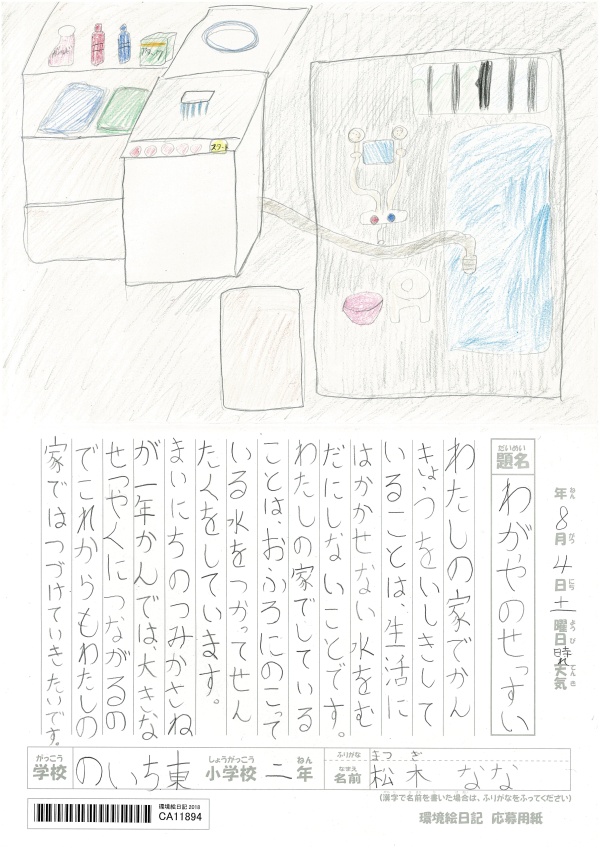 スタート
年 8月 4日 土曜日 晴れ 天気
ねん がつ にち ようび てんき
だいめい
題名
わがやのせっすい
わたしの家でかん
きょうをいしきして
いることは、生活に
はかかせない水をむ
だにしないことです。
わたしの家でしている
ことは、おふろにのこって
いる水をつかってせん
たくをしています。
まいにちのつみかさね
が一年かんでは、大きな
せつやくにつながるの
でこれからもわたしの
家ではつづけていきたいです。
がっこう しょうがっこう ねん
学校 のいち東 小学校 二年
ふりがな まつ ぎ
なまえ
名前 松木 なな
(漢字で名前を書いた場合は、ふりがなをふってください)
環境絵日記 応募用紙
環境絵日記 2018
CA11894